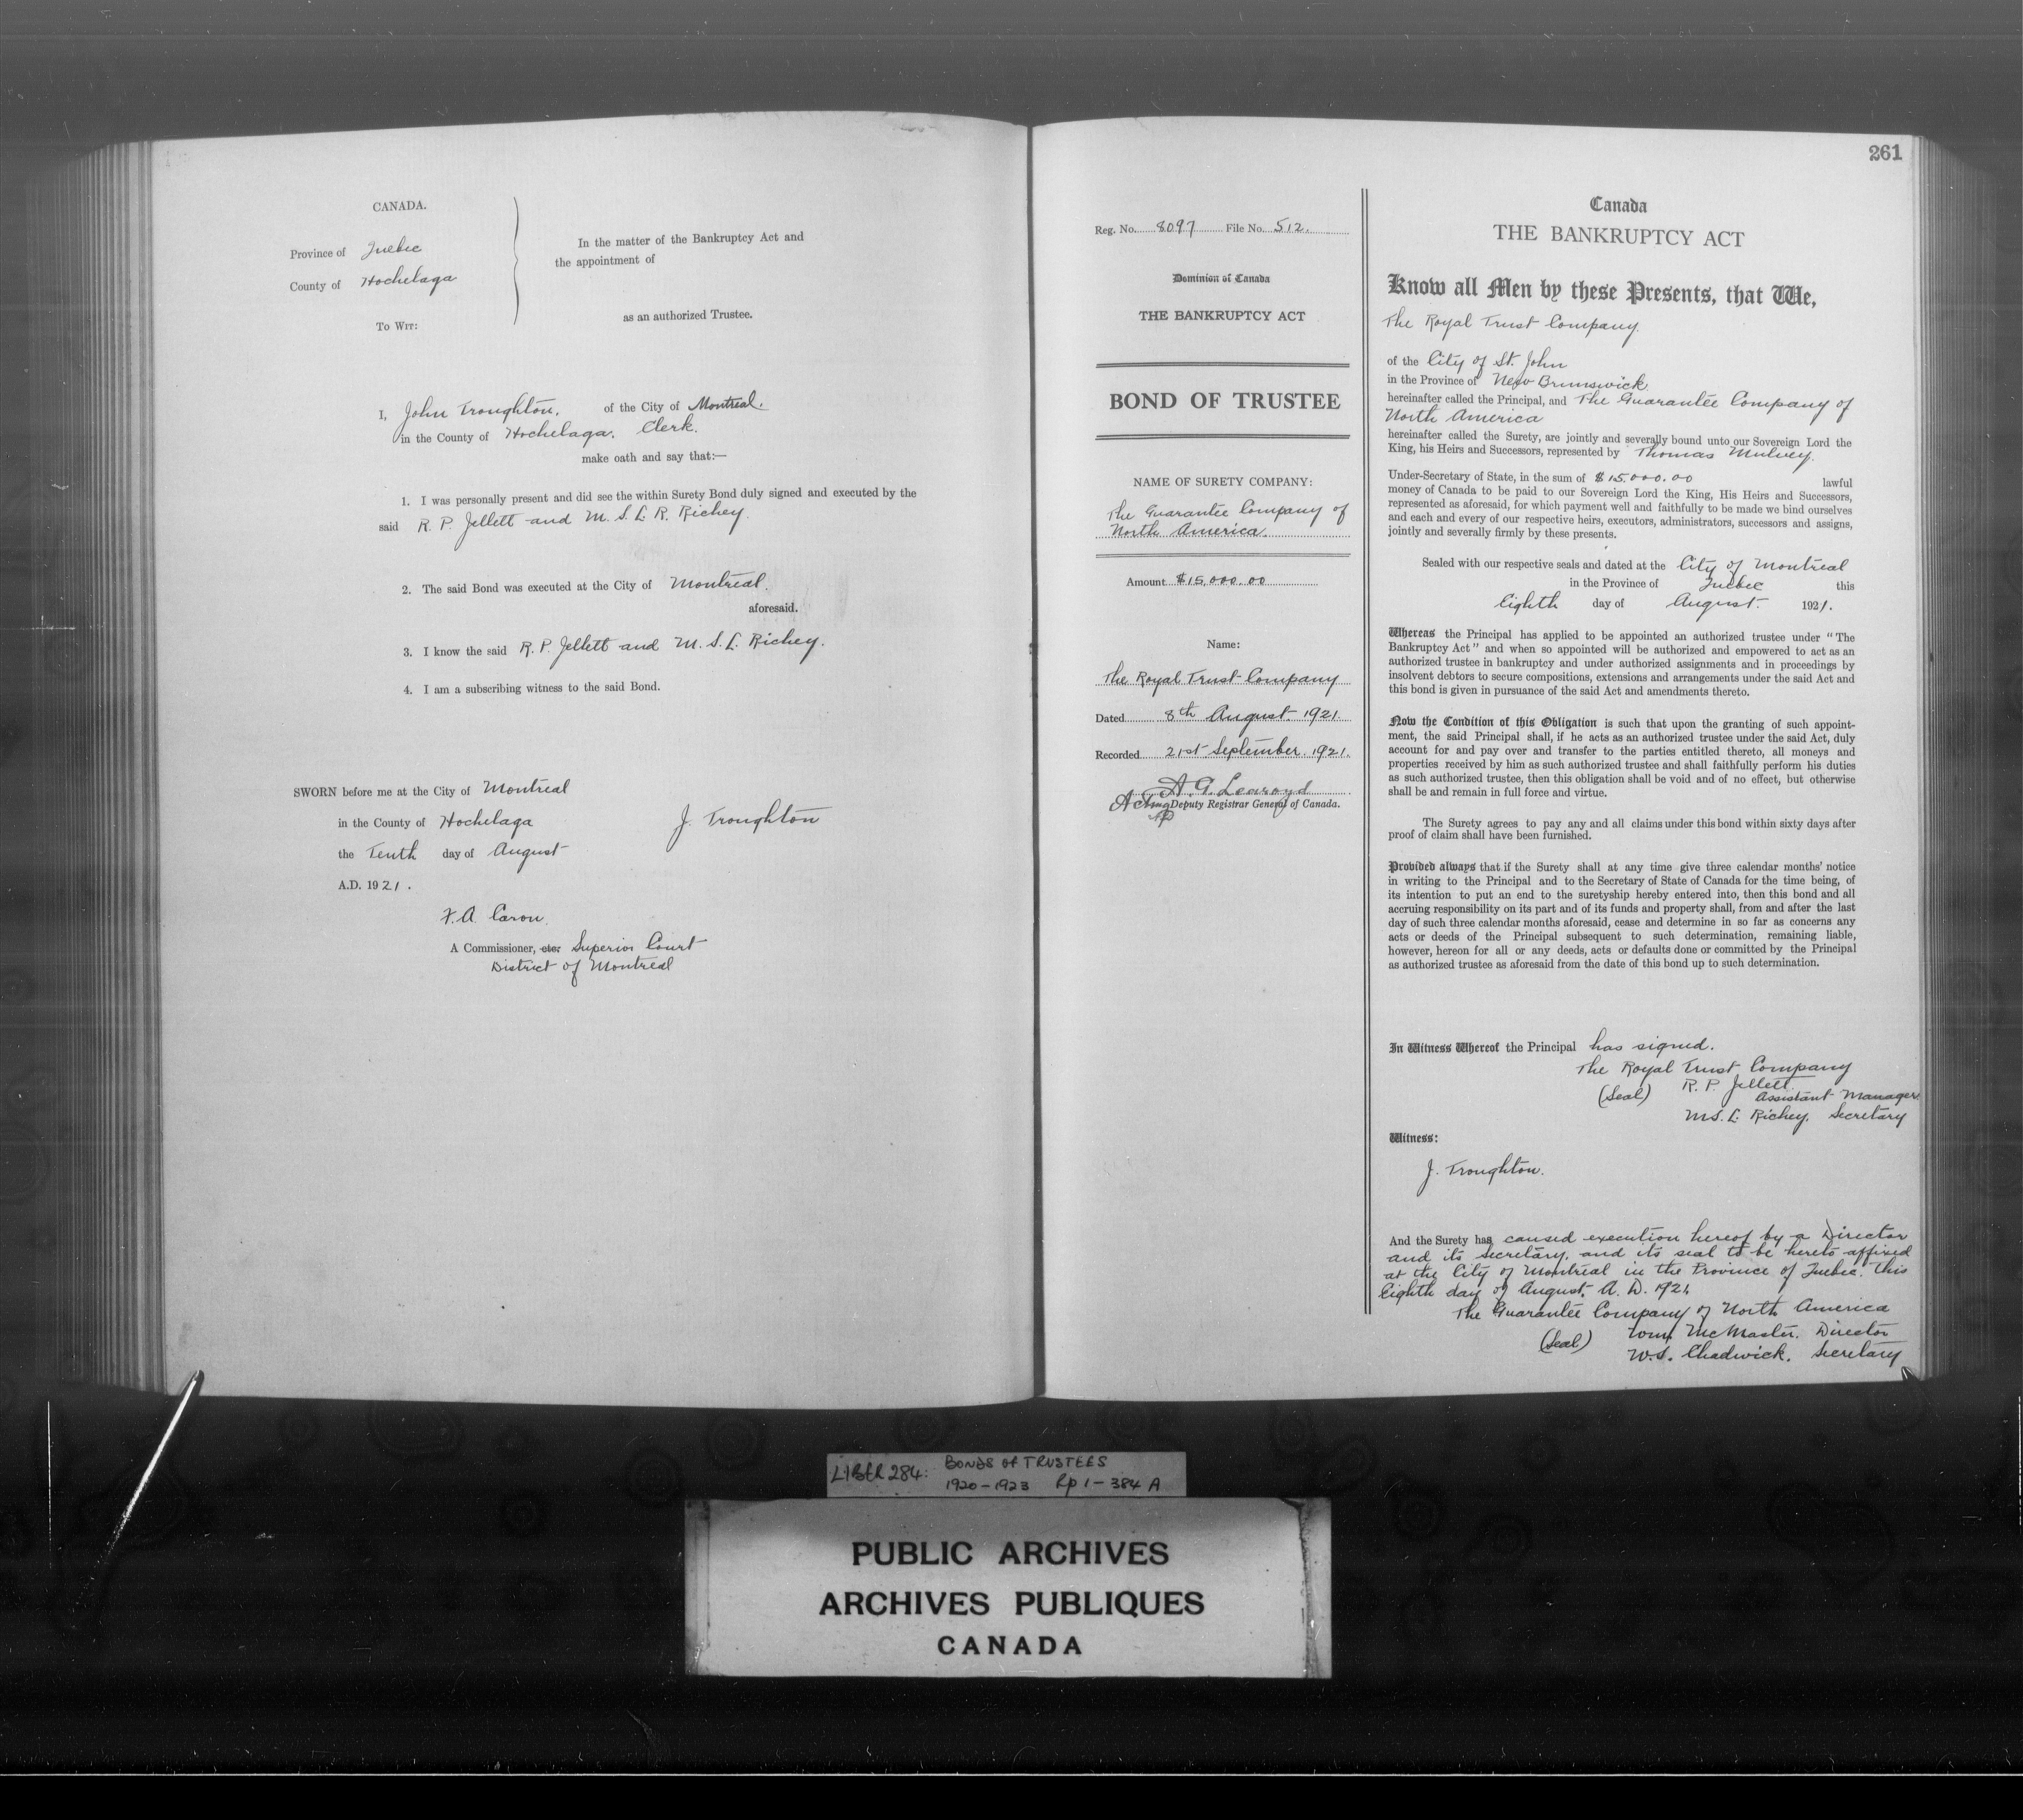 CANADA.
Province of Quebec
County of Hochelaga
To Wit:
In the matter of the Bankruptcy Act and
the appointment of
as an authorized Trustee.
I, John Troughton, of the City of Montreal.
in the County of Hochelaga, Clerk.
make oath and say that:—
1. I was personally present and did see the within Surety Bond duly signed and executed by the
said R. P. Jellett and M. S. L. R. Richey.
2. The said Bond was executed at the City of Montreal.
aforesaid.
3. I know the said R. P. Jellett and M. S. L. Richey.
4. I am a subscribing witness to the said Bond.
SWORN before me at the City of Montreal
in the County of Hochelaga
the Tenth day of August
A.D. 1921.
J. Troughton
F. A. Caron.
A Commissioner, etc. Superior Court
District of Montreal
261
Reg. No. 8097 File No. 512.
Dominion of Canada
THE BANKRUPTCY ACT
BOND OF TRUSTEE
NAME OF SURETY COMPANY:
The Guarantee Company of
North America.
Amount $15,000.00
Name:
The Royal Trust Company
Dated 8th August. 1921.
Recorded 21st September. 1921.
A. G. Learoyd
Acting Deputy Registrar General of Canada.
Canada
THE BANKRUPTCY ACT
Know all Men by these Presents, that We,
The Royal Trust Company.
of the City of St. John
in the Province of New Brunswick.
hereinafter called the Principal, and The Guarantee Company of
North America
hereinafter called the Surety, are jointly and severally bound unto our Sovereign Lord the
King, his Heirs and Successors, represented by Thomas Mulvey.
Under-Secretary of State, in the sum of $15,000.00 lawful
money of Canada to be paid to our Sovereign Lord the King, His Heirs and Successors,
represented as aforesaid, for which payment well and faithfully to be made we bind ourselves
and each and every of our respective heirs, executors, administrators, successors and assigns,
jointly and severally firmly by these presents.
Sealed with our respective seals and dated at the City of Montreal
in the Province of Quebec this
Eighth day of August. 1921.
Whereas the Principal has applied to be appointed an authorized trustee under "The
Bankruptcy Act" and when so appointed will be authorized and empowered to act as an
authorized trustee in bankruptcy and under authorized assignments and in proceedings by
insolvent debtors to secure compositions, extensions and arrangements under the said Act and
this bond is given in pursuance of the said Act and amendments thereto.
Now the Condition of this Obligation is such that upon the granting of such appoint-
ment, the said Principal shall, if he acts as an authorized trustee under the said Act, duly
account for and pay over and transfer to the parties entitled thereto, all moneys and
properties received by him as such authorized trustee and shall faithfully perform his duties
as such authorized trustee, then this obligation shall be void and of no effect, but otherwise
shall be and remain in full force and virtue.
The Surety agrees to pay any and all claims under this bond within sixty days after
proof of claim shall have been furnished.
Provided always that if the Surety shall at any time give three calendar months' notice
in writing to the Principal and to the Secretary of State of Canada for the time being, of
its intention to put an end to the suretyship hereby entered into, then this bond and all
accruing responsibility on its part and of its funds and property shall, from and after the last
day of such three calendar months aforesaid, cease and determine in so far as concerns any
acts or deeds of the Principal subsequent to such determination, remaining liable,
however, hereon for all or any deeds, acts or defaults done or committed by the Principal
as authorized trustee as aforesaid from the date of this bond up to such determination.
In Witness Whereof the Principal has signed.
The Royal Trust Company
(Seal) R. P. Jellett.
Assistant Manager.
M S. L. Richey, Secretary
Witness:
J. Troughton.
And the Surety has caused execution hereof by a Director
and its Secretary, and its seal to be hereto affixed
at the City of Montreal in the Province of Quebec. this
Eighth day of August, A. D. 1921.
The Guarantee Company of North America
(Seal) Wm McMaster. Director
W. S. Chadwick. Secretary
LIBER 284: BONDS OF TRUSTEES
1920-1923 Pp 1-384 A
PUBLIC ARCHIVES
ARCHIVES PUBLIQUES
CANADA